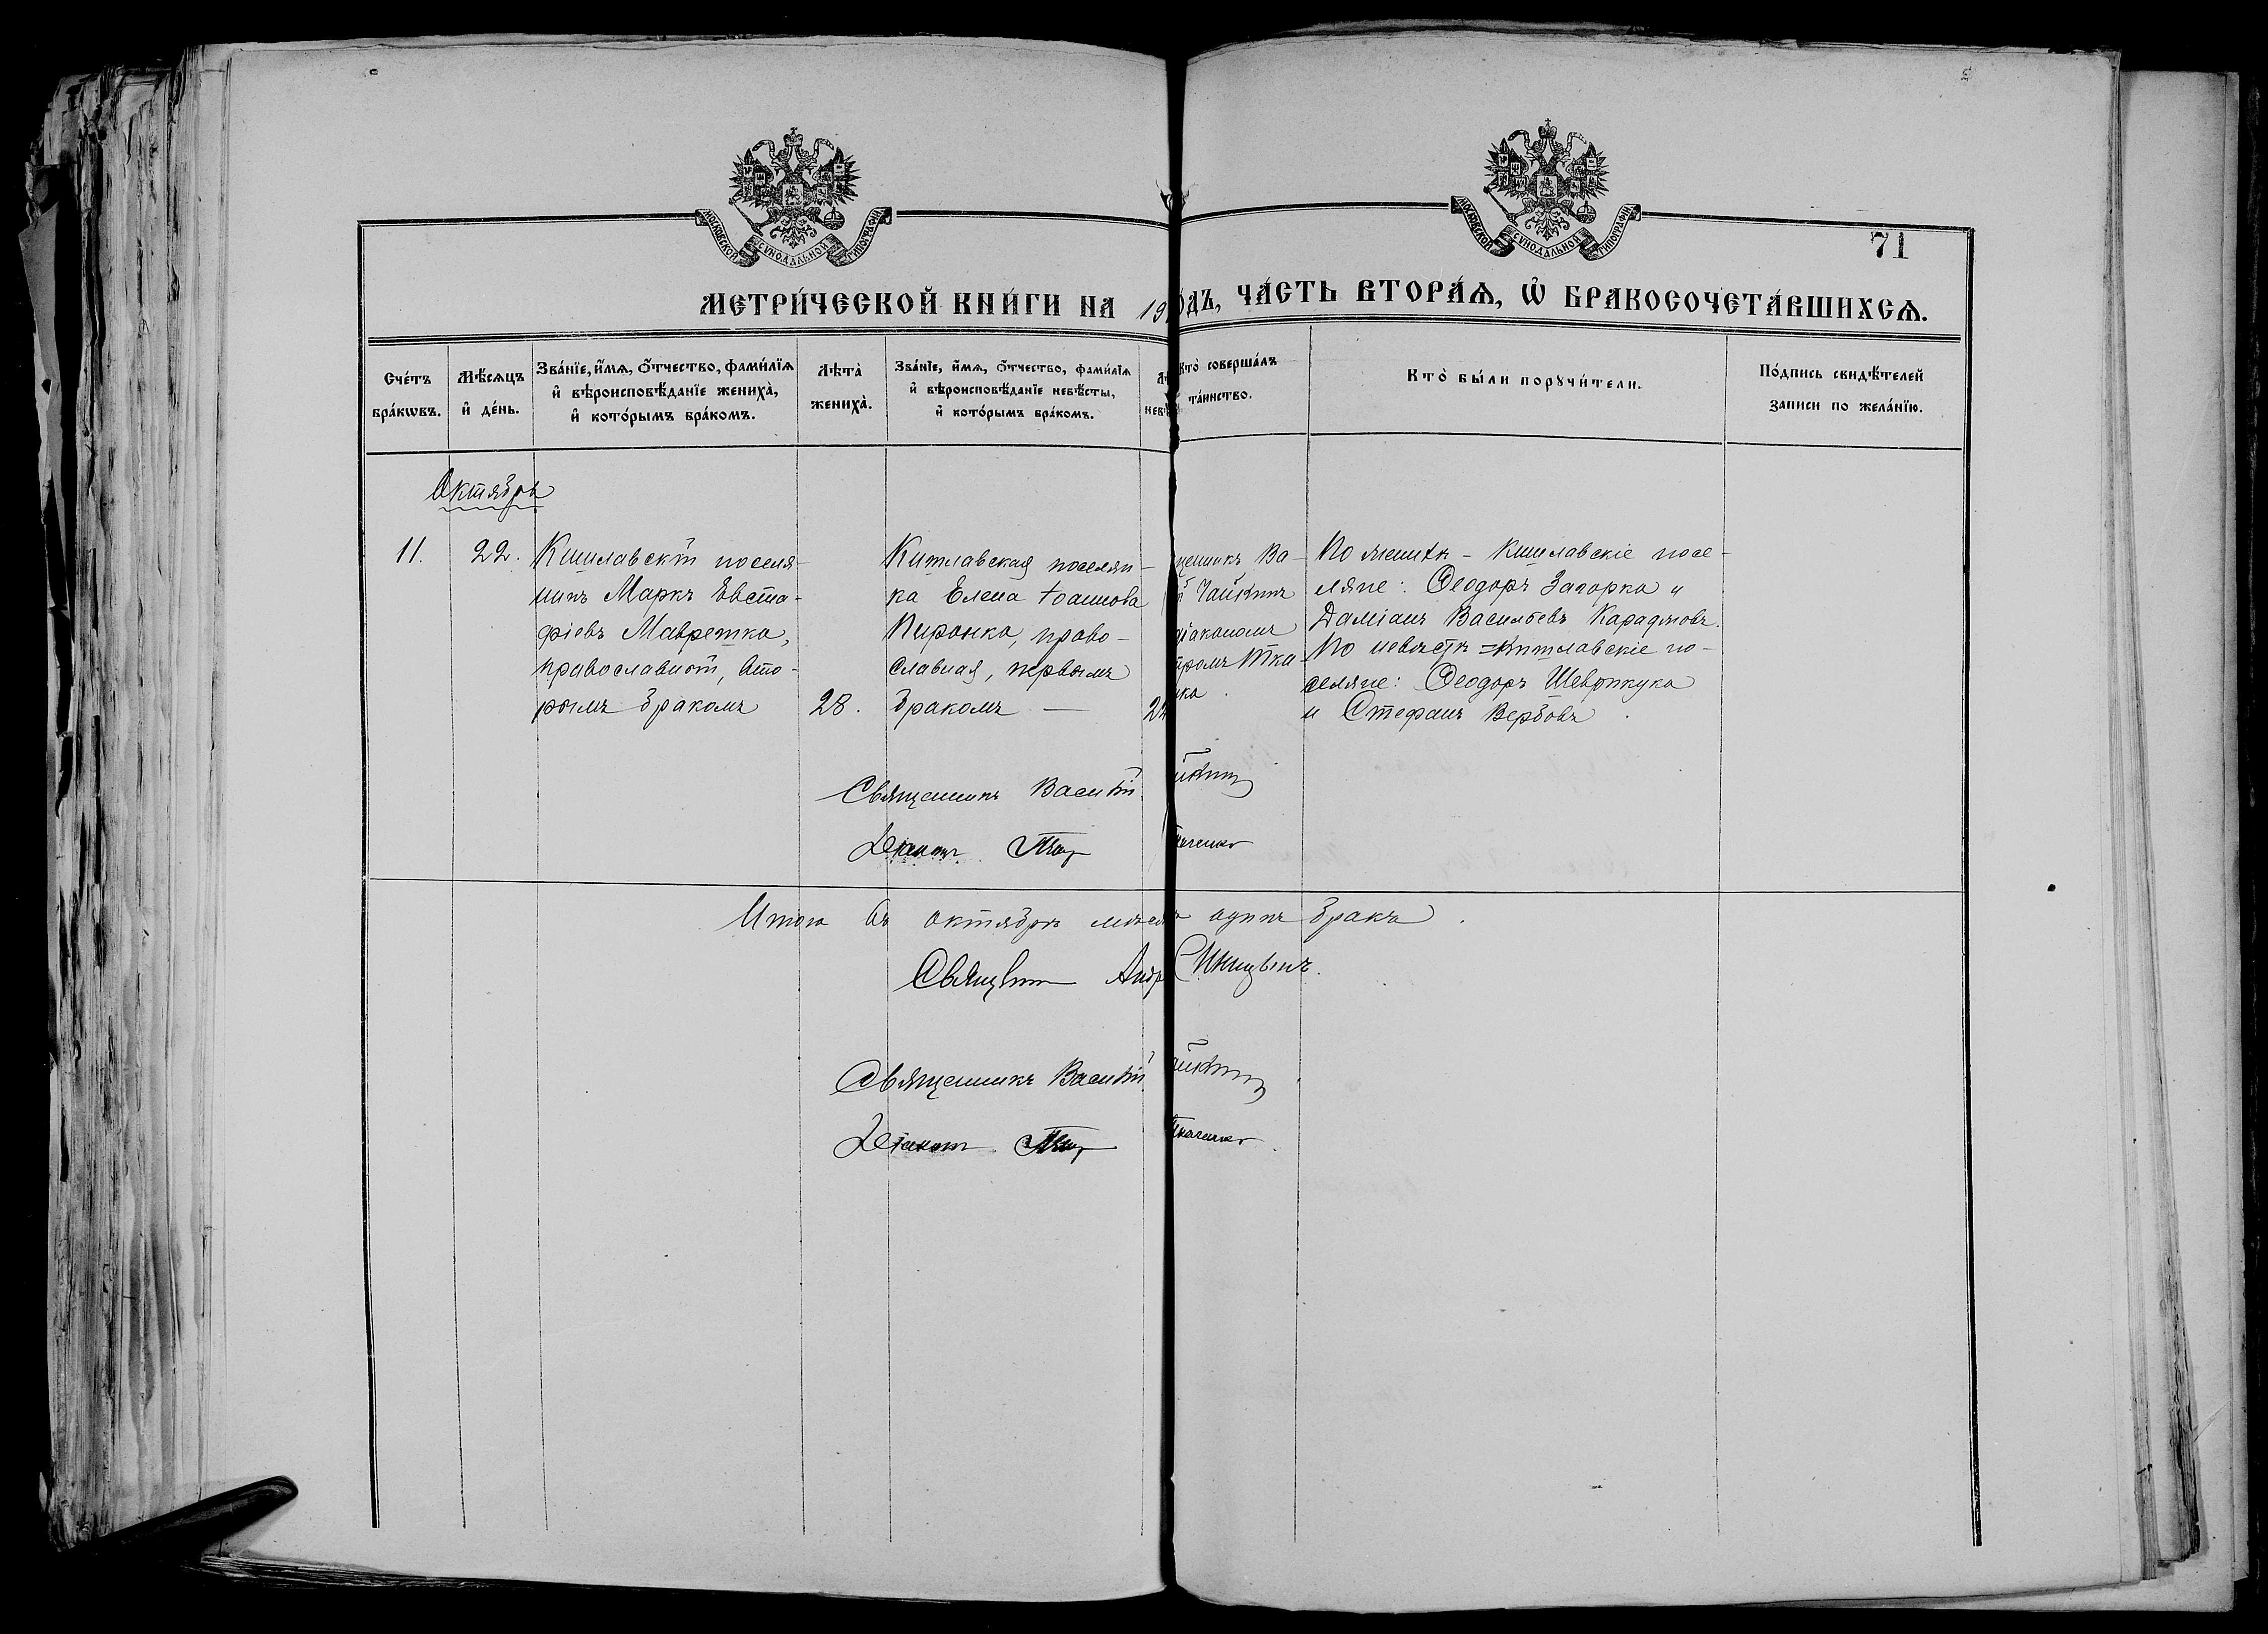 МОСКОВСКОЙ СѴНОДАЛЬНОЙ ТИПОГРАФІИ
МОСКОВСКОЙ СѴНОДАЛЬНОЙ ТИПОГРАФІИ
71
МЕТРИ́ЧЕСКОЙ КНИ́ГИ НА 19
О́ДЪ, ЧА́СТЬ ВТОРА́Ѧ, Ѡ҆ БРАКОСОЧЕТА́ВШИХСѦ.
Сче́тъ
бра́кѡвъ.
Мѣ́сѧцъ
и҆ де́нь.
Зва́нїе, и҆́мѧ, ѻ҆́тчество, фами́лїѧ
и҆ вѣроисповѣ́данїе жениха̀,
и҆ кото́рымъ бра́комъ.
Лѣта̀
жениха̀.
Зва́нїе, и҆́мѧ, ѻ҆́тчество, фами́лїѧ
и҆ вѣроисповѣ́данїе невѣ́сты,
и҆ кото́рымъ бра́комъ.
Кто̀ соверша́лъ
та́инство.
Кто̀ бы́ли порꙋчи́тели.
По́дпись свидѣ́телей
записи по жела́нїю.
Октябрь
11.
22.
Кишлавскій поселя-
нинъ Маркъ Евста-
фіевъ Мавретка,
православный, вто-
рымъ бракомъ
28.
Кишлавская поселян-
ка Елена Іоаннова
Пиронко, право-
славная, первымъ
бракомъ —
2
щенникъ Ва-
й Чайкинъ
діакономъ
тромъ Тка
нко.
По женихѣ - Кишлавскіе посе-
ляне: Ѳеодоръ Загорка и
Даміанъ Васильевъ Караджовъ.
По невѣстѣ = Кишлавскіе по-
селяне: Ѳеодоръ Шеврикука
и Стефанъ Вербовъ.
Священникъ Василій йкинъ
Діаконъ Ткаченко
Итого въ октябрѣ мѣся одинъ бракъ.
Священникъ Андр Синицынъ.
Священникъ Василій айкинъ
Діаконъ Ткаченко